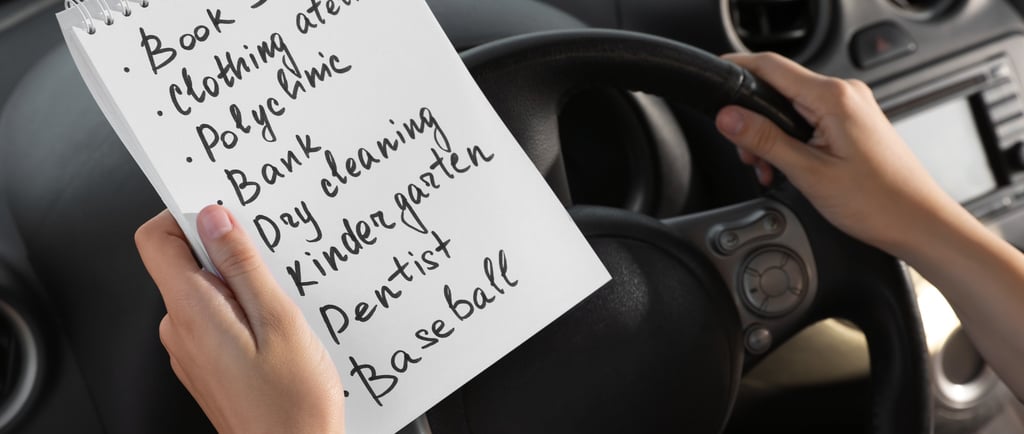 · Book
· Clothing atel
· Polyclinic
· Bank
Dry cleaning
Kindergarten
Dentist
· Baseball